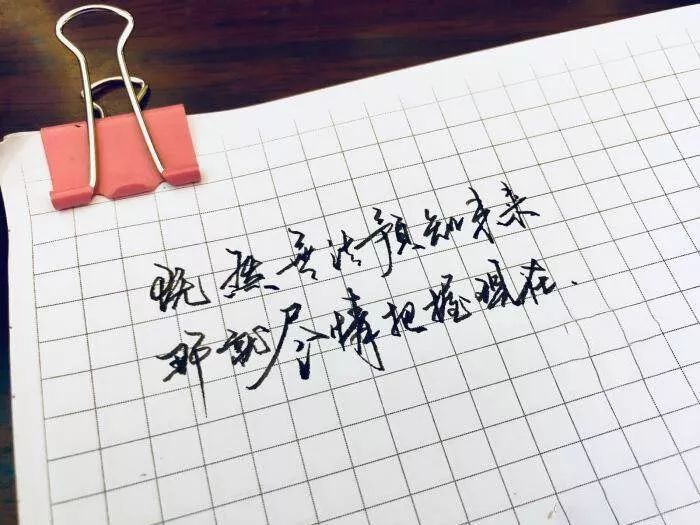 既然无法预知未来
那就尽情把握现在.